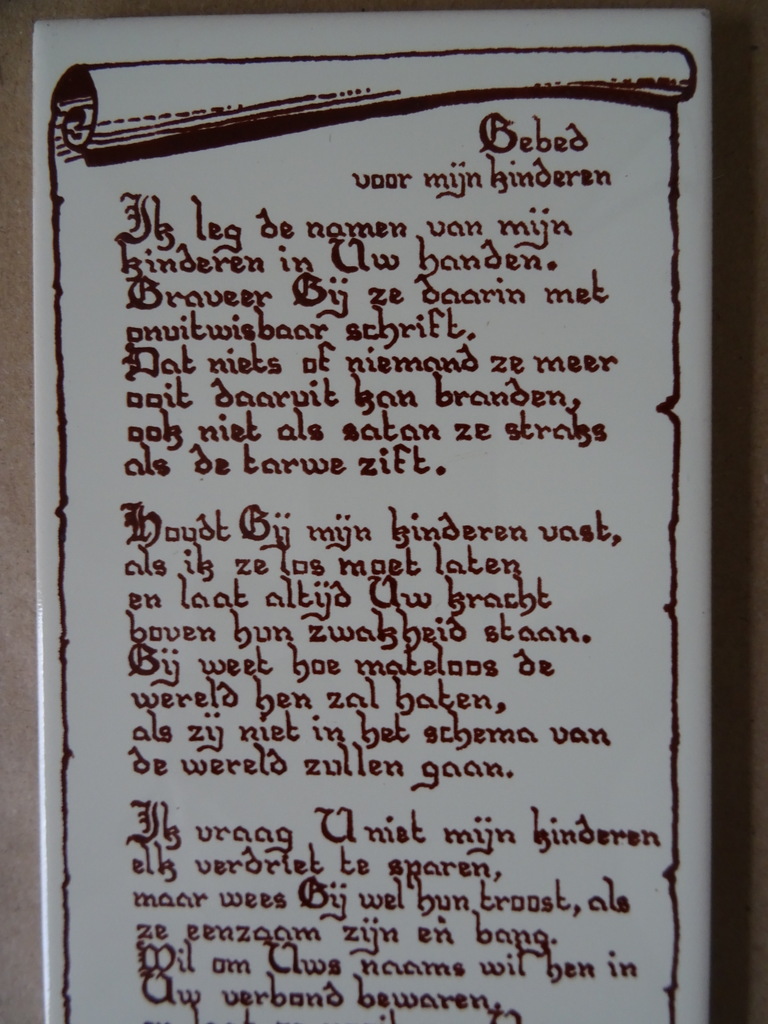 Gebed
voor mijn kinderen
Ik leg de namen van mijn
kinderen in Uw handen.
Graveer Gij ze daarin met
onuitwisbaar schrift.
Dat niets of niemand ze meer
ooit daaruit kan branden,
ook niet als satan ze straks
als de tarwe zift.
Houdt Gij mijn kinderen vast,
als ik ze los moet laten
en laat altijd Uw kracht
boven hun zwakheid staan.
Gij weet hoe mateloos de
wereld hen zal haten,
als zij niet in het schema van
de wereld zullen gaan.
Ik vraag U niet mijn kinderen
elk verdriet te sparen,
maar wees Gij wel hun troost, als
ze eenzaam zijn en bang.
Wil om Uws naams wil hen in
Uw verbond bewaren,